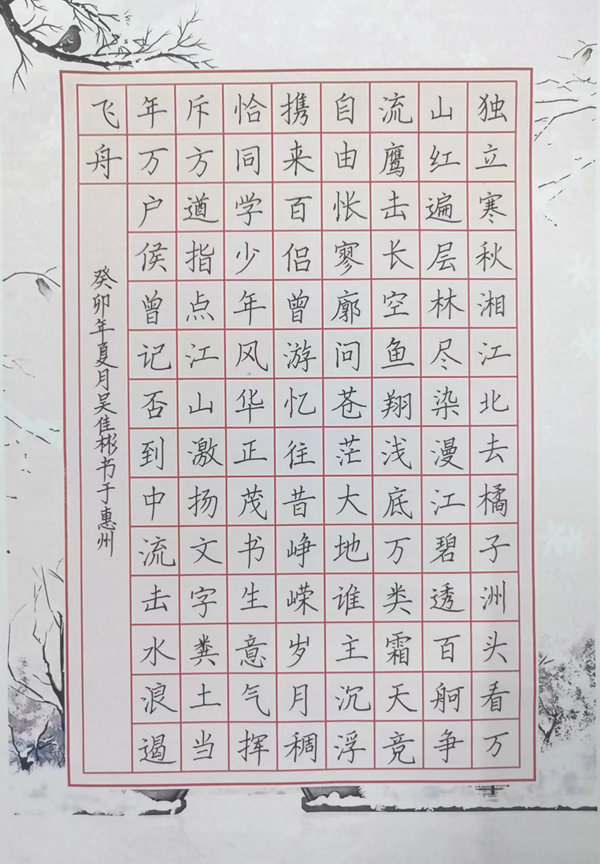 独立寒秋湘江北去橘子洲头看万
山红遍层林尽染漫江碧透百舸争
流鹰击长空鱼翔浅底万类霜天竞
自由怅寥廓问苍茫大地谁主沉浮
携来百侣曾游忆往昔峥嵘岁月稠
恰同学少年风华正茂书生意气挥
斥方遒指点江山激扬文字粪土当
年万户侯曾记否到中流击水浪遏
飞舟
癸卯年夏月吴佳彬书于惠州